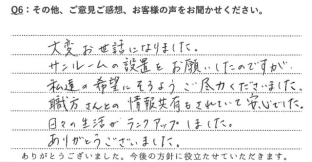 Q6：その他、ご意見ご感想、お客様の声をお聞かせください。
大変お世話になりました。
サンルームの設置をお願いしたのですが、
私達の希望にそうようご尽力くださいました。
職方さんとの情報共有もされていて安心でした。
日々の生活がランクアップしました。
ありがとうございました。
ありがとうございました。今後の方針に役立たせていただきます。